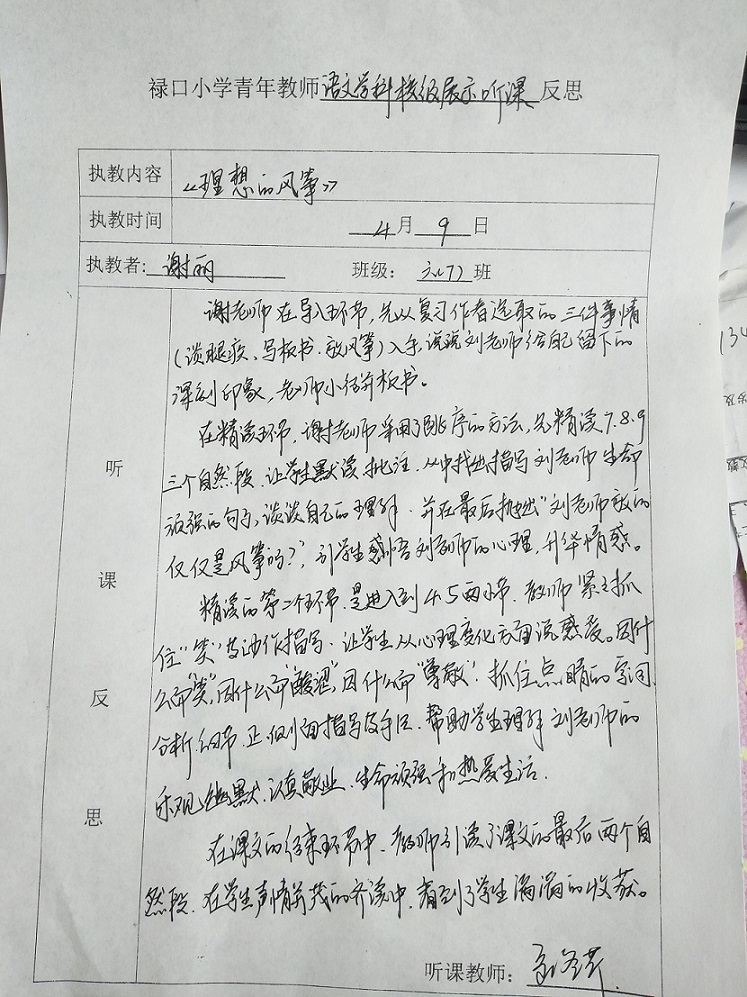 禄口小学青年教师语文学科校级展示听课反思
执教内容 《理想的风筝》
执教时间 4月9日
执教者：谢丽 班级：六(7)班
听课反思
谢老师在导入环节，先从复习作者选取的三件事情
（谈腿疾、写板书、放风筝）入手，说说刘老师给自己留下的
深刻印象，老师小结并板书。
在精读环节，谢老师采用了跳序的方法，先精读7.8.9
三个自然段，让学生默读批注，从中找出描写刘老师生命
顽强的句子，谈谈自己的理解，并在最后抛出“刘老师放的
仅仅是风筝吗？”，引学生感悟刘老师的心理，升华情感。
精读的第二个环节，是进入到4.5两小节，教师紧紧抓
住“笑”及动作描写，让学生从心理变化方面说感受。因什
么而“笑”，因什么而“酸涩”，因什么而“尊敬”，抓住点睛的字词，
分析细节、正侧面描写及手法，帮助学生理解刘老师的
乐观幽默、认真敬业、生命顽强和热爱生活。
在课文的结束环节中，教师引读了课文的最后两个自
然段，在学生声情并茂的齐读中，看到了学生满满的收获。
听课教师：